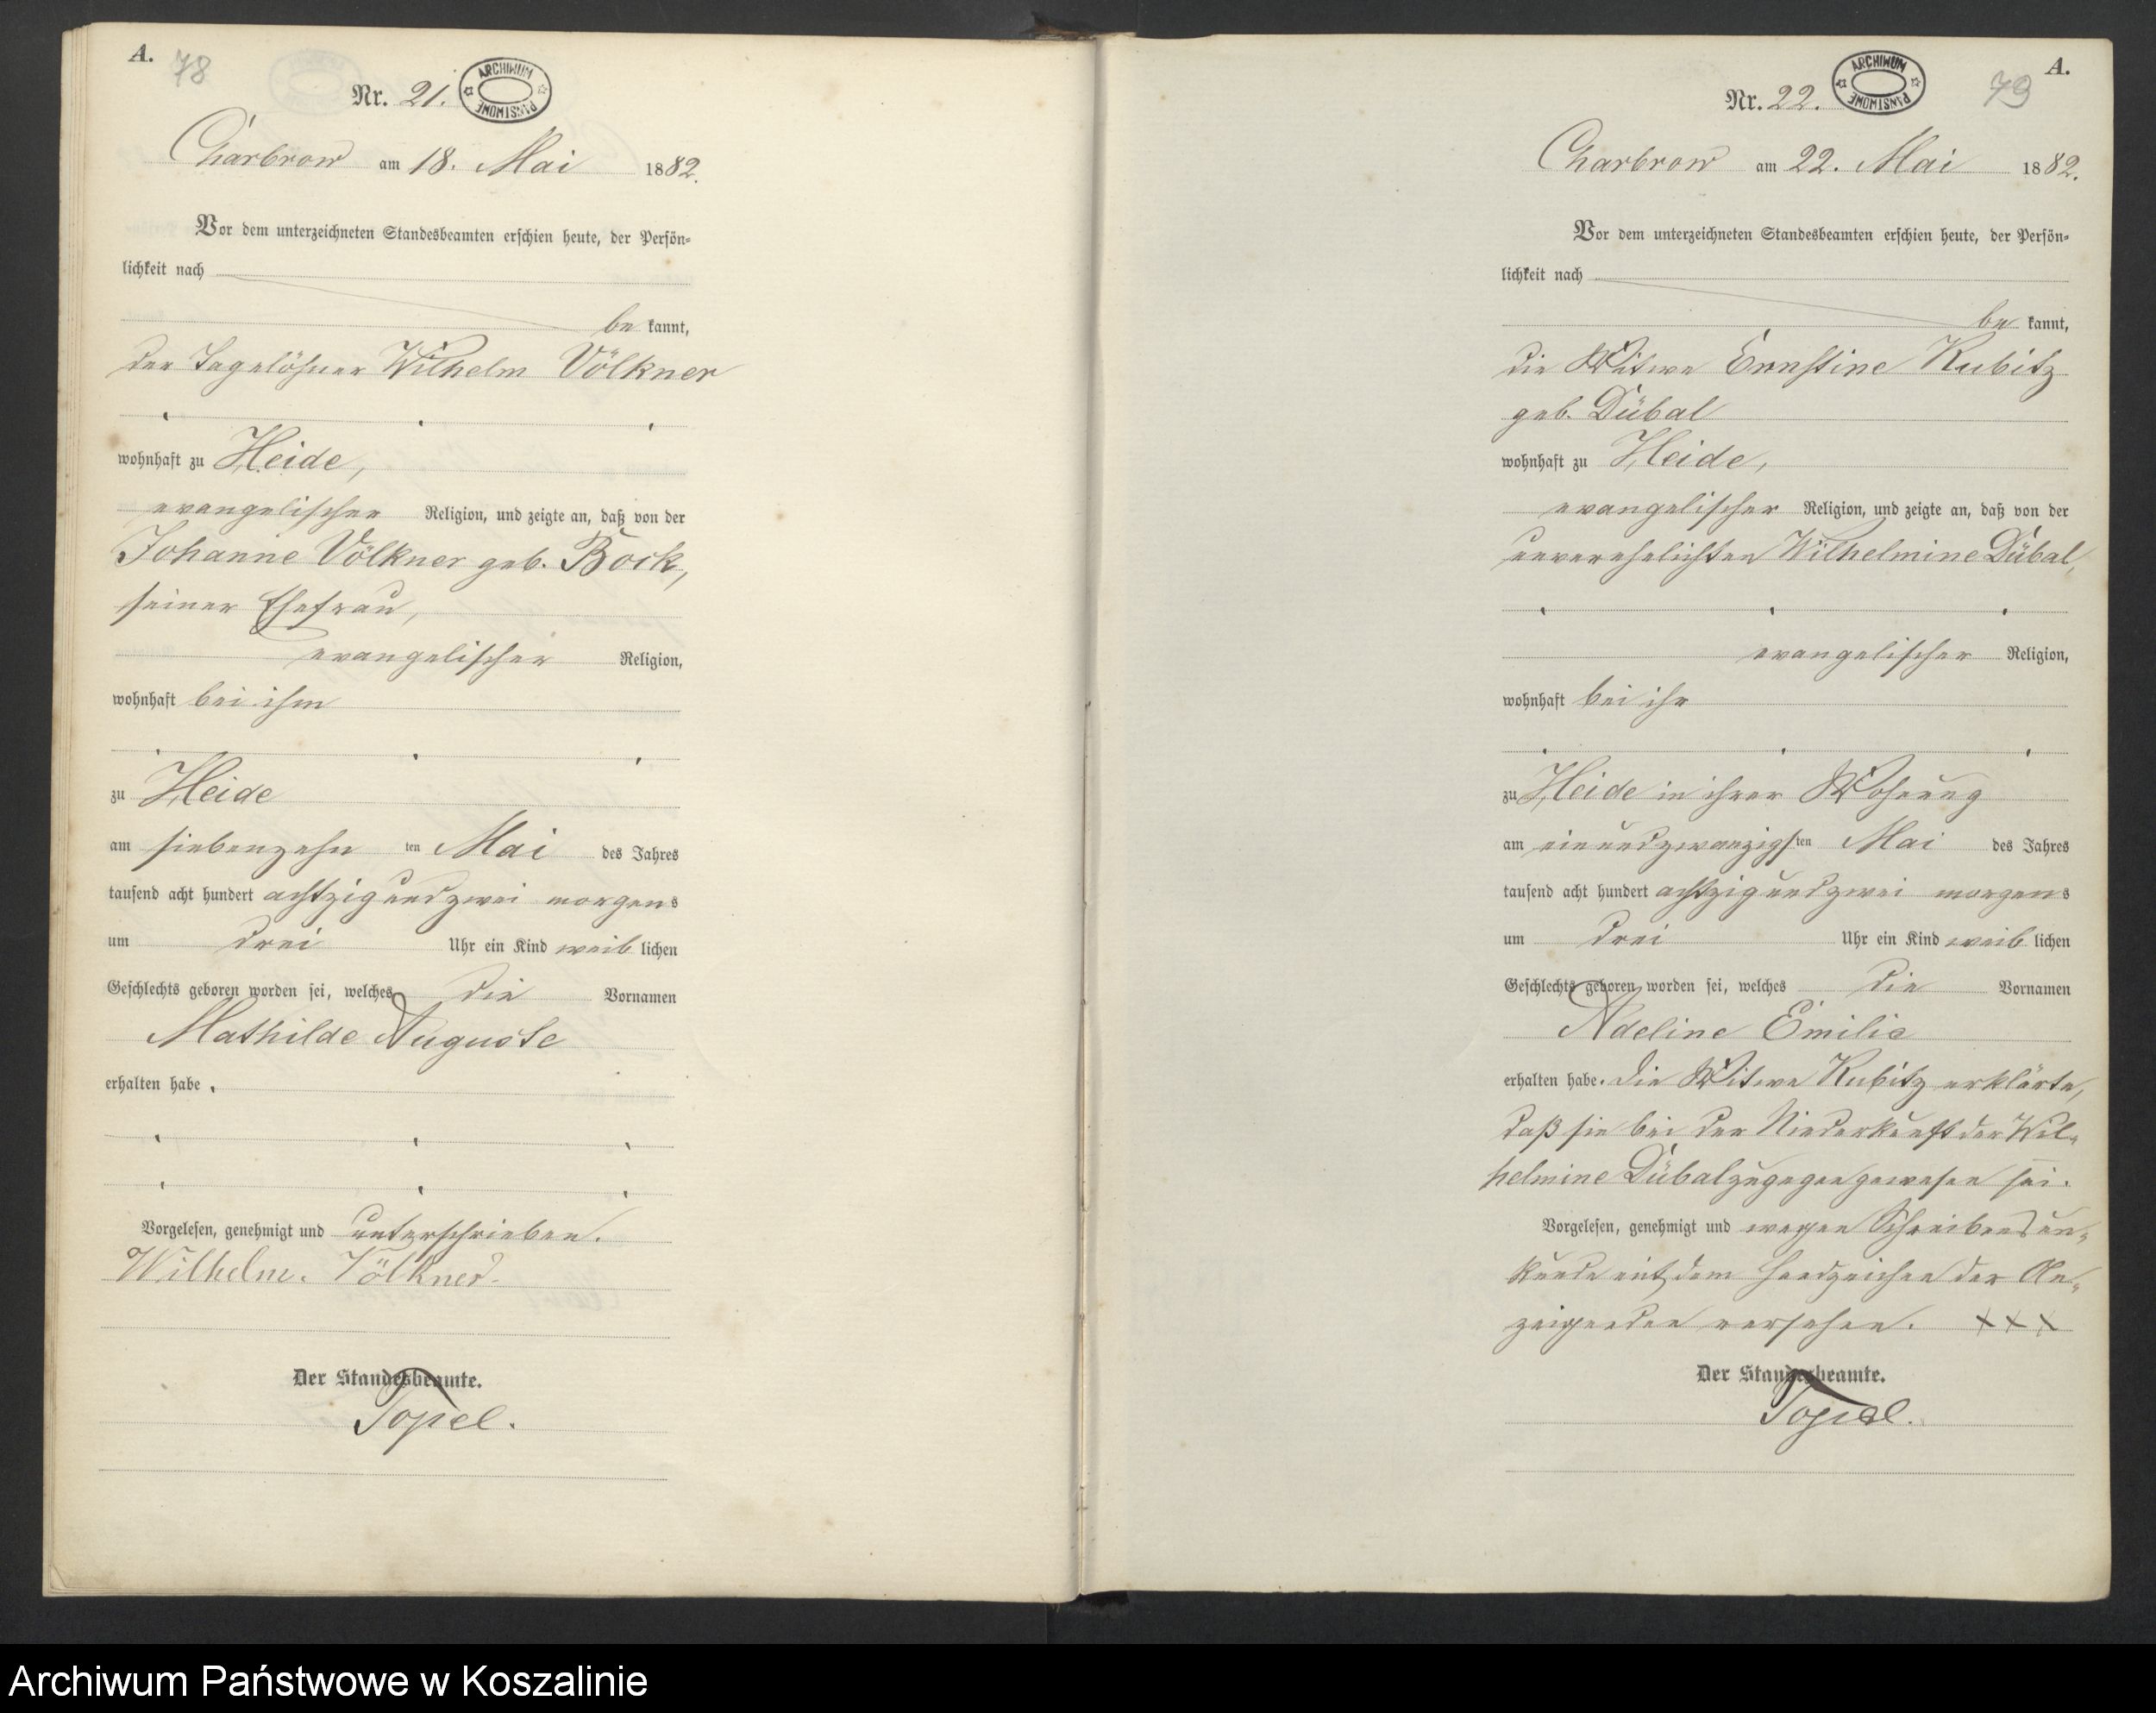 A.
78
Nr. 21.
ARCHIWUM PAŃSTWOWE
Charbrow am 18. Mai 1882.
Vor dem unterzeichneten Standesbeamten erschien heute, der Persön-
lichkeit nach
be kannt,
der Tagelöhner Wilhelm Völkner
wohnhaft zu Heide,
evangelischer Religion, und zeigte an, daß von der
Johanne Völkner geb. Bock,
seiner Ehefrau,
evangelischer Religion,
wohnhaft bei ihm
zu Heide
am siebenzehn ten Mai des Jahres
tausend acht hundert achtzig und zwei morgens
um drei Uhr ein Kind weib lichen
Geschlechts geboren worden sei, welches die Vornamen
Mathilde Auguste
erhalten habe.
Vorgelesen, genehmigt und unterschrieben.
Wilhelm. Völkner.
Der Standesbeamte.
Topel.
A.
79
Nr. 22.
ARCHIWUM PAŃSTWOWE
Charbrow am 22. Mai 1882.
Vor dem unterzeichneten Standesbeamten erschien heute, der Persön-
lichkeit nach
be kannt,
die Witwe Ernstine Kubitz
geb. Dübal
wohnhaft zu Heide,
evangelischer Religion, und zeigte an, daß von der
unverehelichten Wilhelmine Dübal,
evangelischer Religion,
wohnhaft bei ihr
zu Heide in ihrer Wohnung
am einundzwanzigsten Mai des Jahres
tausend acht hundert achtzig und zwei morgens
um drei Uhr ein Kind weib lichen
Geschlechts geboren worden sei, welches die Vornamen
Adeline Emilie
erhalten habe. Die Witwe Kubitz erklärte,
daß sie bei der Niederkunft der Wil-
helmine Dübal zugegen gewesen sei.
Vorgelesen, genehmigt und wegen Schreibensun-
kunde mit dem Handzeichen der An-
zeigenden versehen. XXX
Der Standesbeamte.
Topel.
Archiwum Państwowe w Koszalinie